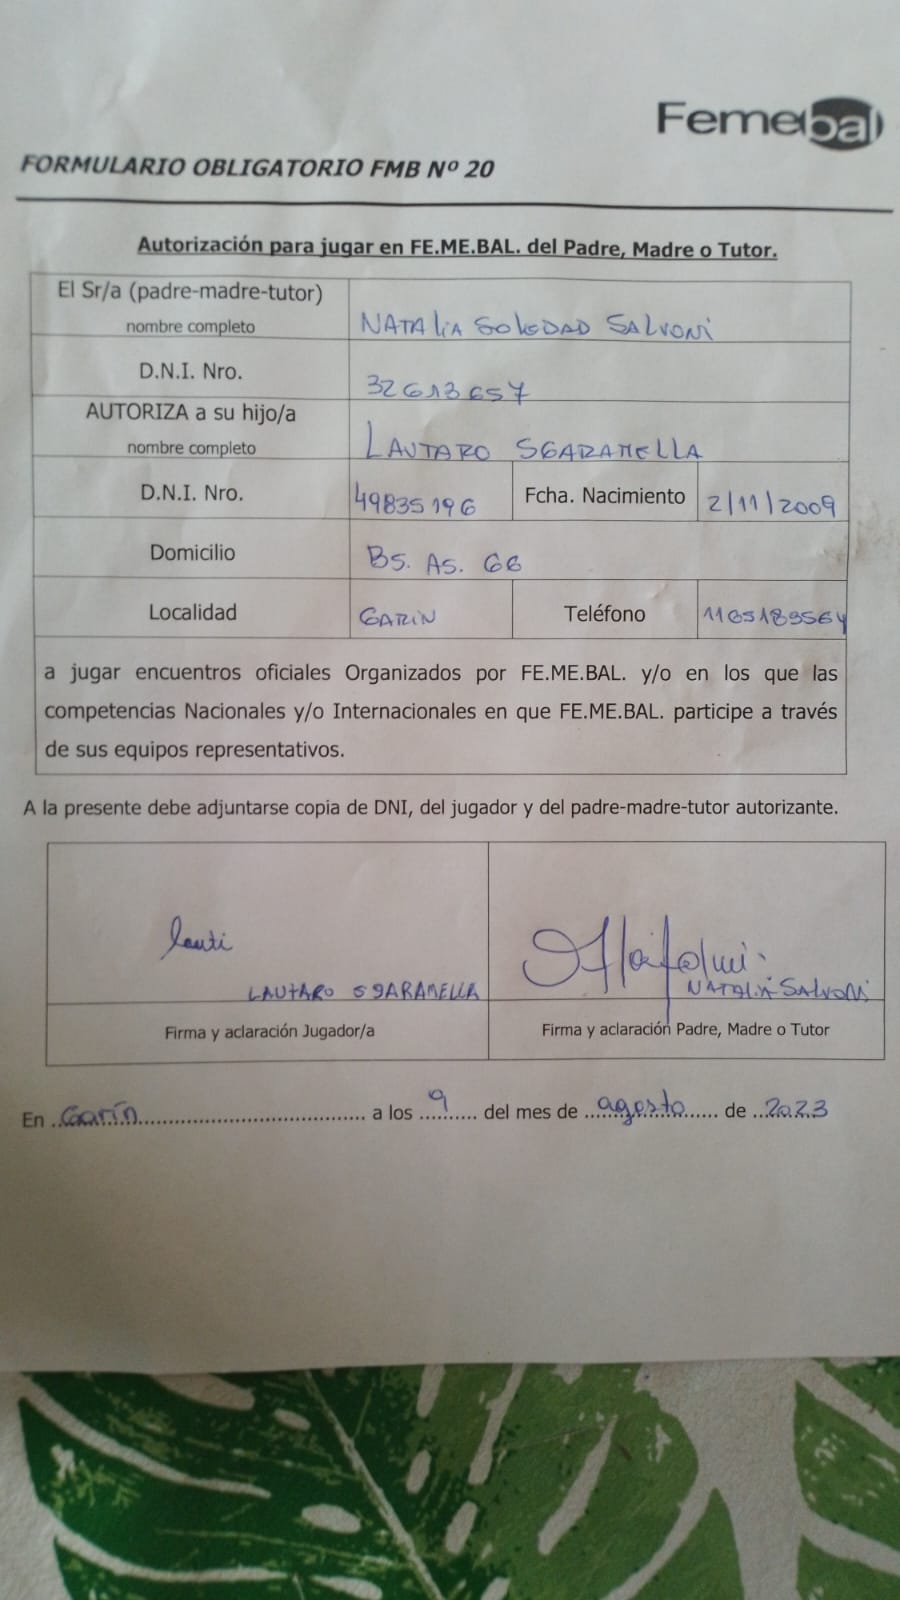 Femebal
FORMULARIO OBLIGATORIO FMB Nº 20
Autorización para jugar en FE.ME.BAL. del Padre, Madre o Tutor.
El Sr/a (padre-madre-tutor)
nombre completo
NATALIA SOLEDAD SALVONI
D.N.I. Nro.
32613657
AUTORIZA a su hijo/a
nombre completo
LAUTARO SGARAMELLA
D.N.I. Nro.
49835196
Fcha. Nacimiento
2/11/2009
Domicilio
BS. AS. 66
Localidad
GARIN
Teléfono
1165189564
a jugar encuentros oficiales Organizados por FE.ME.BAL. y/o en los que las
competencias Nacionales y/o Internacionales en que FE.ME.BAL. participe a través
de sus equipos representativos.
A la presente debe adjuntarse copia de DNI, del jugador y del padre-madre-tutor autorizante.
Lauti
LAUTARO SGARAMELLA
NATALIA SALVONI
Firma y aclaración Jugador/a
Firma y aclaración Padre, Madre o Tutor
En Garín a los 9 del mes de agosto de 2023